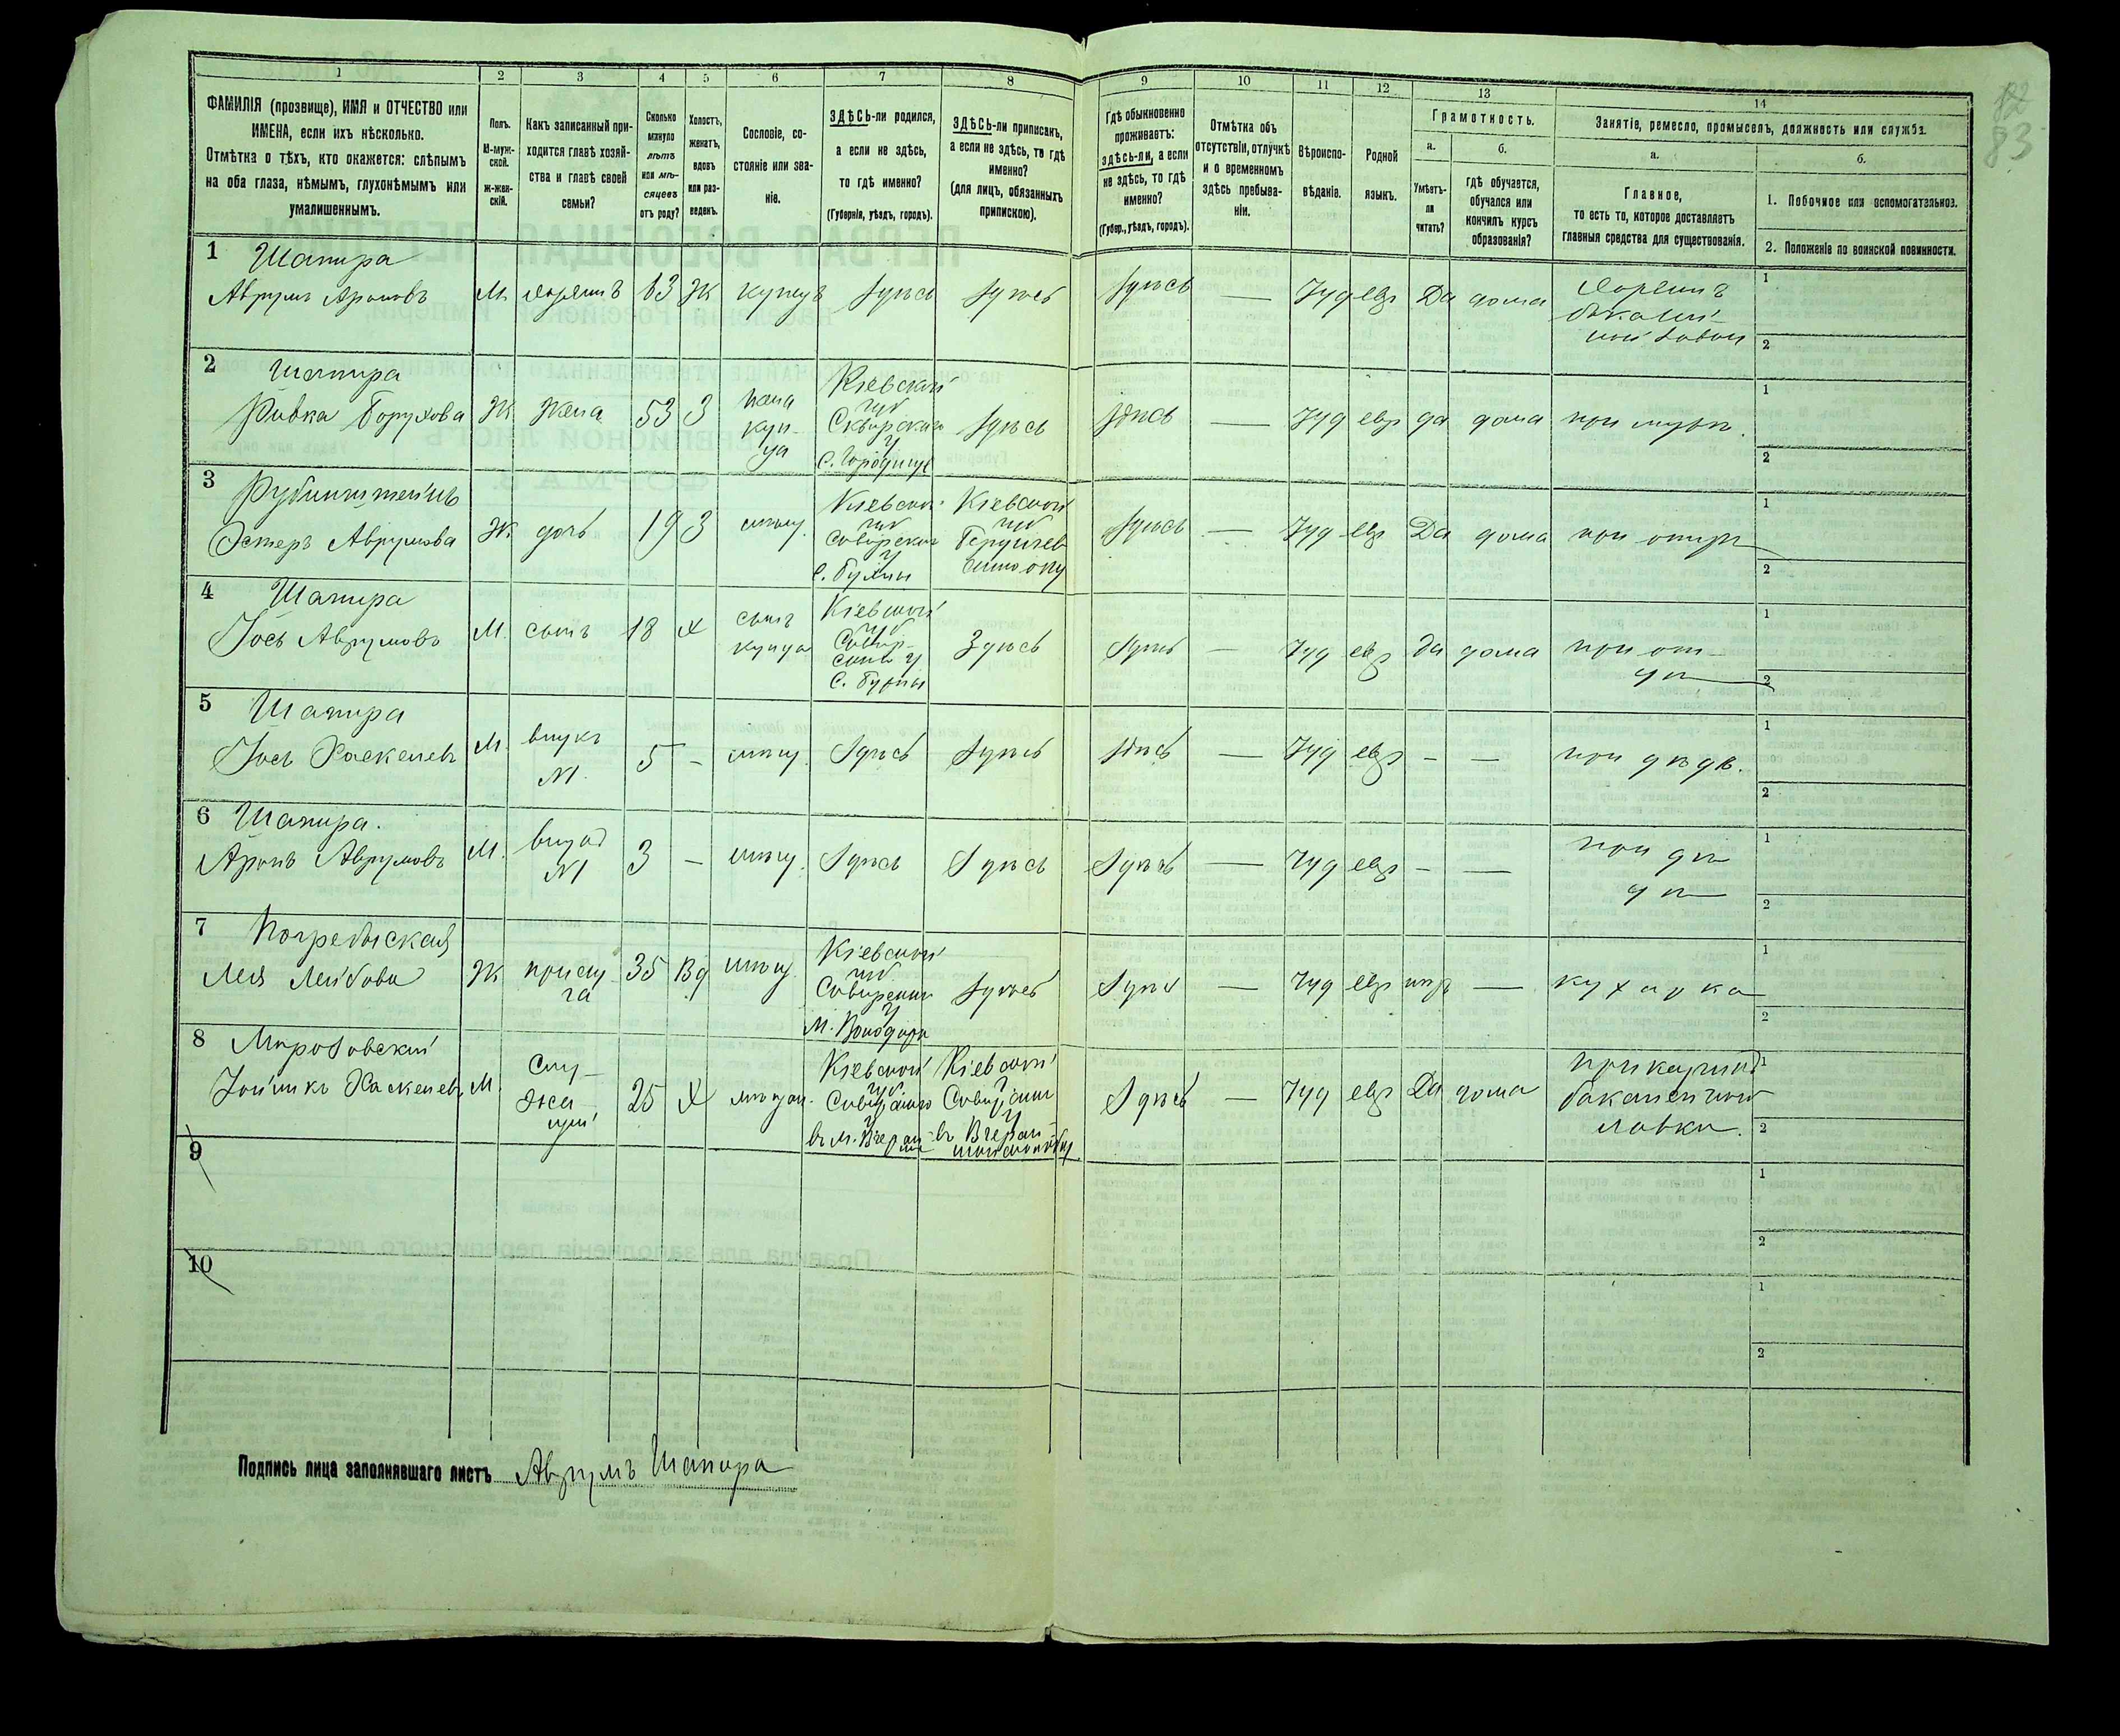 1 2 3 4 5 6 7 8 9 10 11 12 13 14
ФАМИЛІЯ (прозвище), ИМЯ и ОТЧЕСТВО или
ИМЕНА, если ихъ нѣсколько.
Отмѣтка о тѣхъ, кто окажется: слѣпымъ
на оба глаза, нѣмымъ, глухонѣмымъ или
умалишеннымъ.
Полъ.
М-муж-
ской.
Ж-жен-
скій.
Какъ записанный при-
ходится главѣ хозяй-
ства и главѣ своей
семьи?
Сколько
минуло
лѣтъ
или мѣ-
сяцевъ
отъ роду?
Холостъ,
женатъ,
вдовъ
или раз-
веденъ.
Сословіе, со-
стояніе или зва-
ніе.
ЗДѢСЬ-ли родился,
а если не здѣсь,
то гдѣ именно?
(Губернія, уѣздъ, городъ).
ЗДѢСЬ-ли приписанъ,
а если не здѣсь, то гдѣ
именно?
(для лицъ, обязанныхъ
припискою).
Гдѣ обыкновенно
проживаетъ:
здѣсь-ли, а если
не здѣсь, то гдѣ
именно?
(Губер., уѣздъ, городъ).
Отмѣтка объ
отсутствіи, отлучкѣ
и о временномъ
здѣсь пребыва-
ніи.
Вѣроиспо-
вѣданіе.
Родной
языкъ.
Грамотность.
а.
Умѣетъ-
ли
читать?
б.
гдѣ обучается,
обучался или
кончилъ курсъ
образованія?
Занятіе, ремесло, промыселъ, должность или служба.
а.
Главное,
то есть то, которое доставляетъ
главныя средства для существованія.
б.
1. Побочное или вспомогательное.
2. Положеніе по воинской повинности.
83
1 Шапира
Аврумъ Ароновъ М. хозяинъ 63 Ж купецъ здѣсь здѣсь здѣсь — Іуд евр Да дома хозяинъ
бакалей-
ной лавки
1
2
2 Шапира
Ривка Борухова Ж жена 53 З жена
куп-
ца
Кіевской
губ
Сквирскаго
у
с. Городище
здѣсь здѣсь — Іуд евр да дома при мужѣ.
1
2
3 Рубинштейнъ
Эстеръ Аврумова Ж дочь 19 З мѣщ.
Кіевской
губ
Сквирскаго
у
Кіевской
губ
здѣсь — Іуд евр Да дома при отцѣ
1
2
4 Шапира
Іось Аврумовъ М. сынъ 18 Х сынъ
купца
Кіевской
губ
Сквир-
скаго у
Здѣсь здѣсь — Іуд евр да дома при от-
цѣ
1
2
5 Шапира
Іось Хаскелевъ М. внукъ
М. 5 — мѣщ. здѣсь здѣсь здѣсь — Іуд евр — — при дѣдѣ.
1
2
6 Шапира.
Аронъ Аврумовъ М. внукъ
М 3 — мѣщ. здѣсь здѣсь здѣсь — Іуд евр — — при дѣ
дѣ
1
2
7 Погребыская
Лея Лейбова Ж прислу
га 35 Вд мѣщ.
Кіевской
губ
Сквирскаго
у
м. Володарка
здѣсь здѣсь — Іуд евр — кухарка
1
2
8
Хаскелевъ М. Слу-
жа-
щій 25 Х мѣщан.
Кіевской
губ
Сквирскаго
у
Кіевской
губ
Сквирскаго
у
здѣсь — Іуд евр Да дома прикащикъ
бакалейной
лавки.
1
2
9
1
2
10
1
2
Подпись лица заполнявшаго листъ Аврумъ Шапира